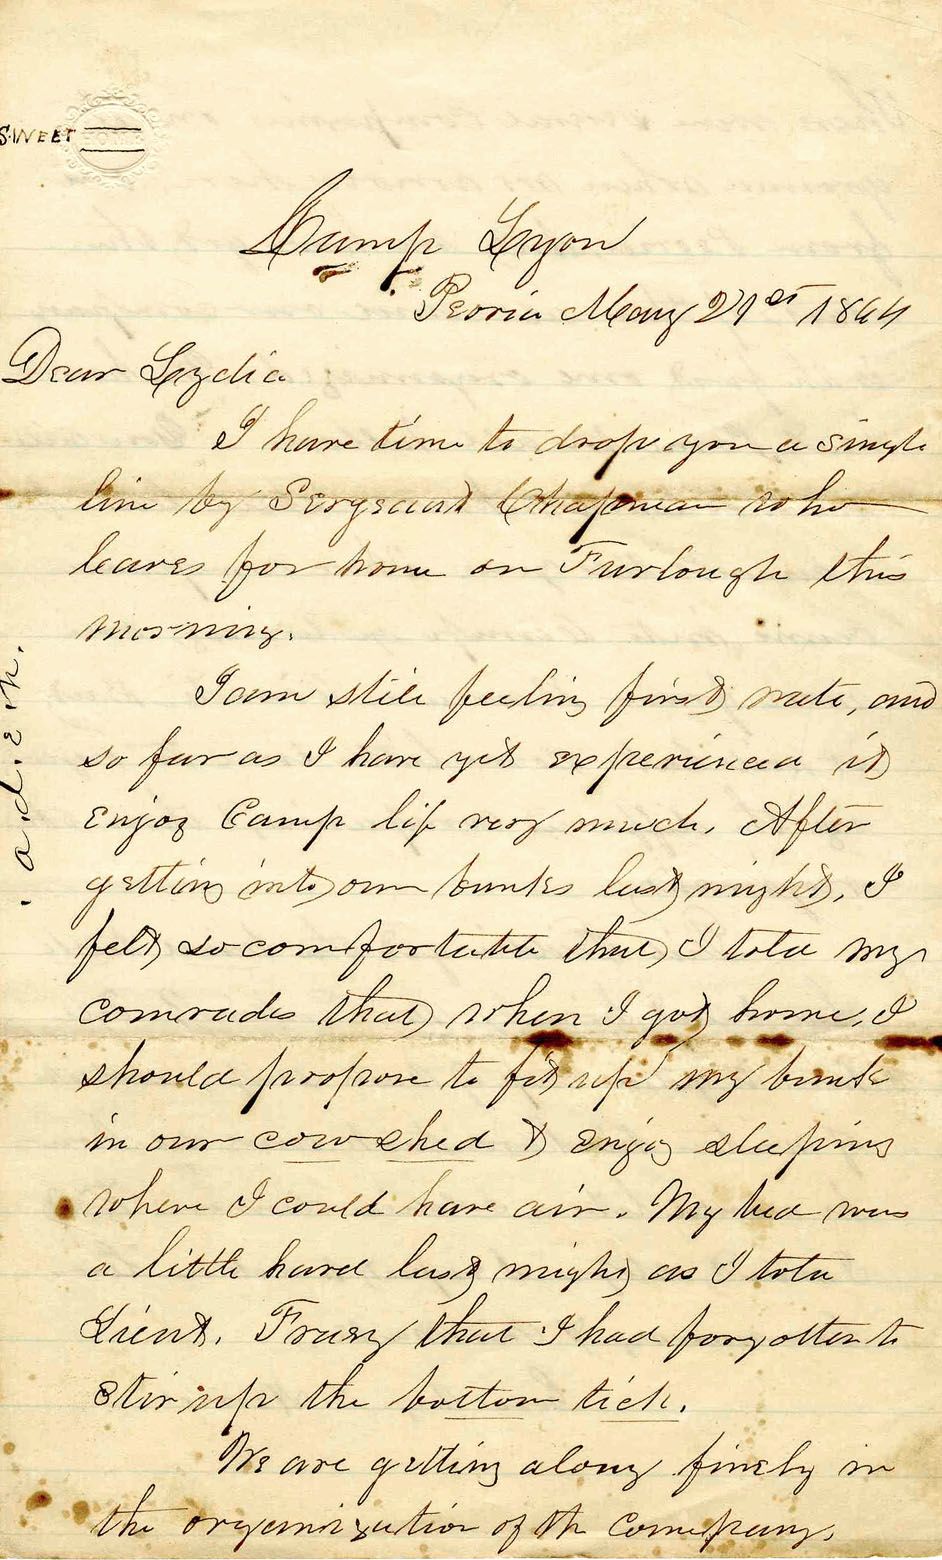 SWEET
Camp Lyon
Peoria May 21st 1864
Dear Lydia
I have time to drop you a single
line by Sergeant Chapman who
leaves for home on Furlough this
morning.
I am still feeling first rate, and
so far as I have yet experienced it
enjoy Camp life very much. After
getting into our bunks last night, I
felt so comfortable that I told my
comrades that when I got home, I
should propose to fit up my bunk
in our cow shed & enjoy sleeping
where I could have air. My bed was
a little hard last night as I told
Lieut. Frary that I had forgotten to
stir up the bottom tick.
We are getting along finely in
the organization of the company.